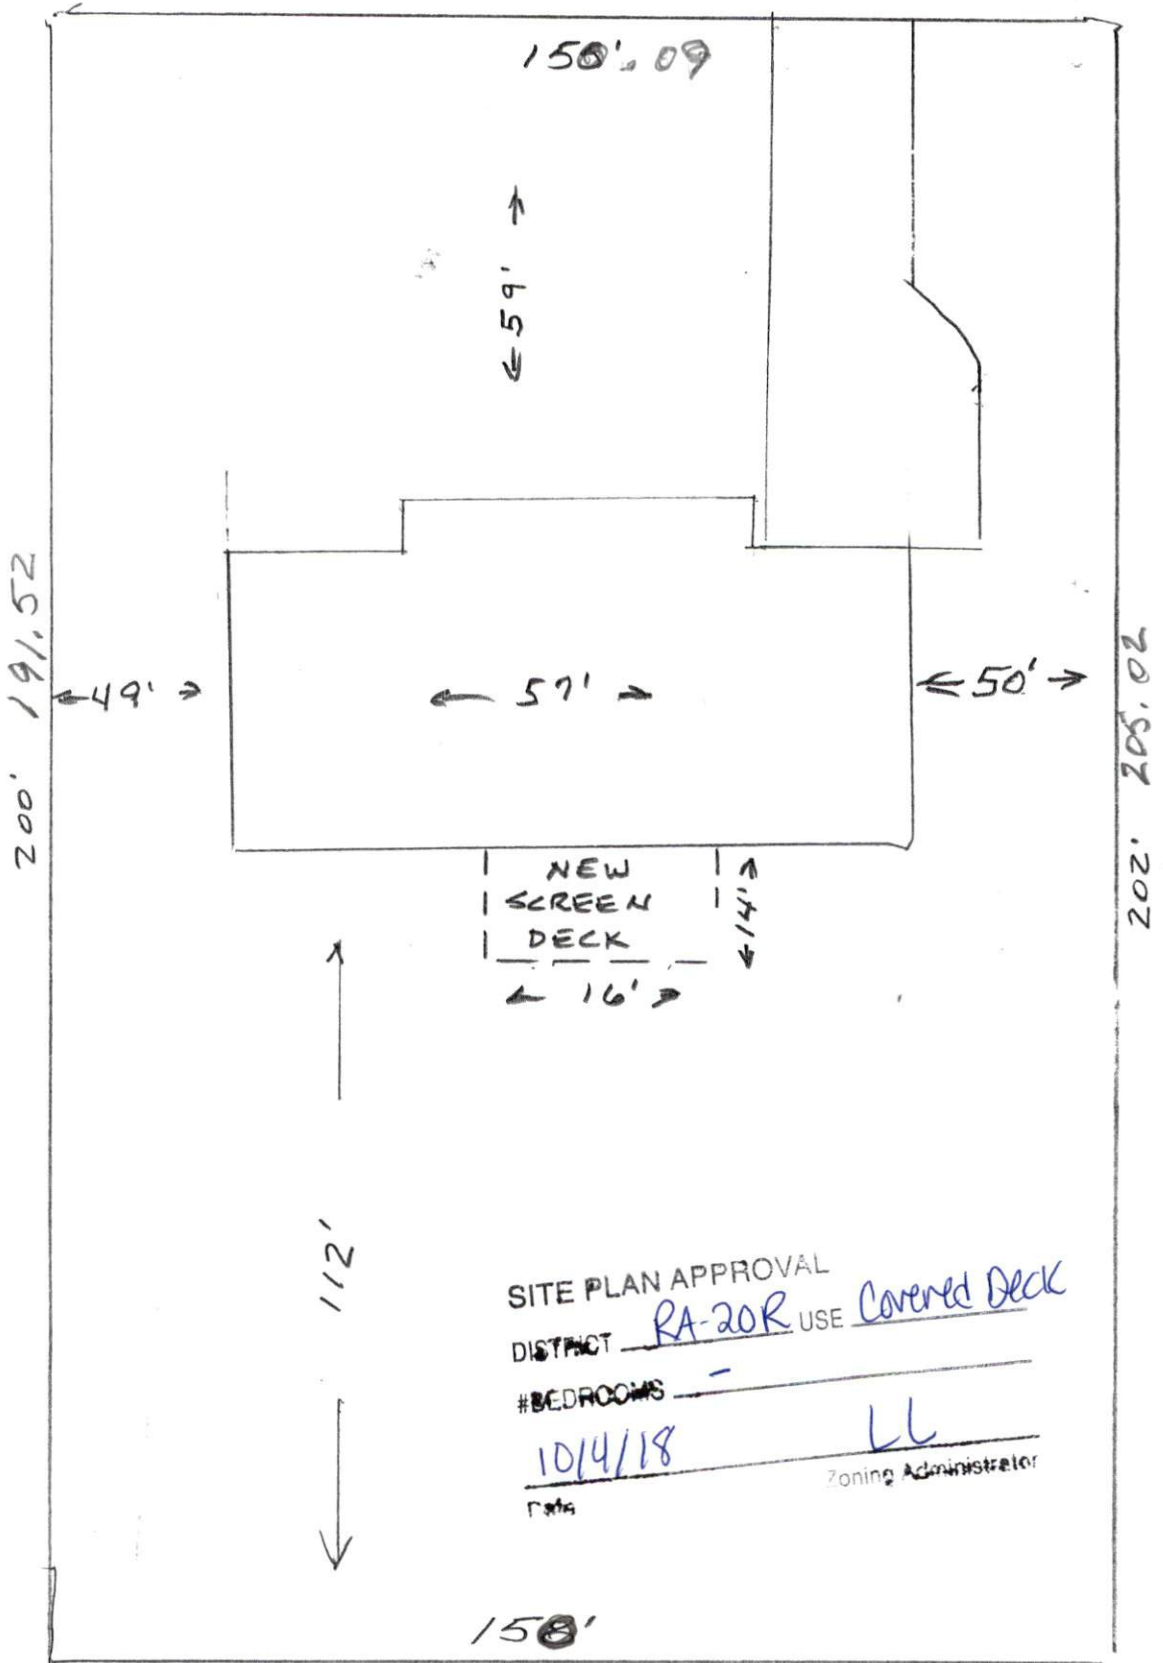 150'.09
59'
200' 191.52
49'
57'
50'
202' 205.02
NEW
SCREEN
DECK
14'
16'
112'
SITE PLAN APPROVAL
DISTRICT RA-20R USE Covered Deck
#BEDROOMS -
10/4/18 LL
Date Zoning Administrator
158'